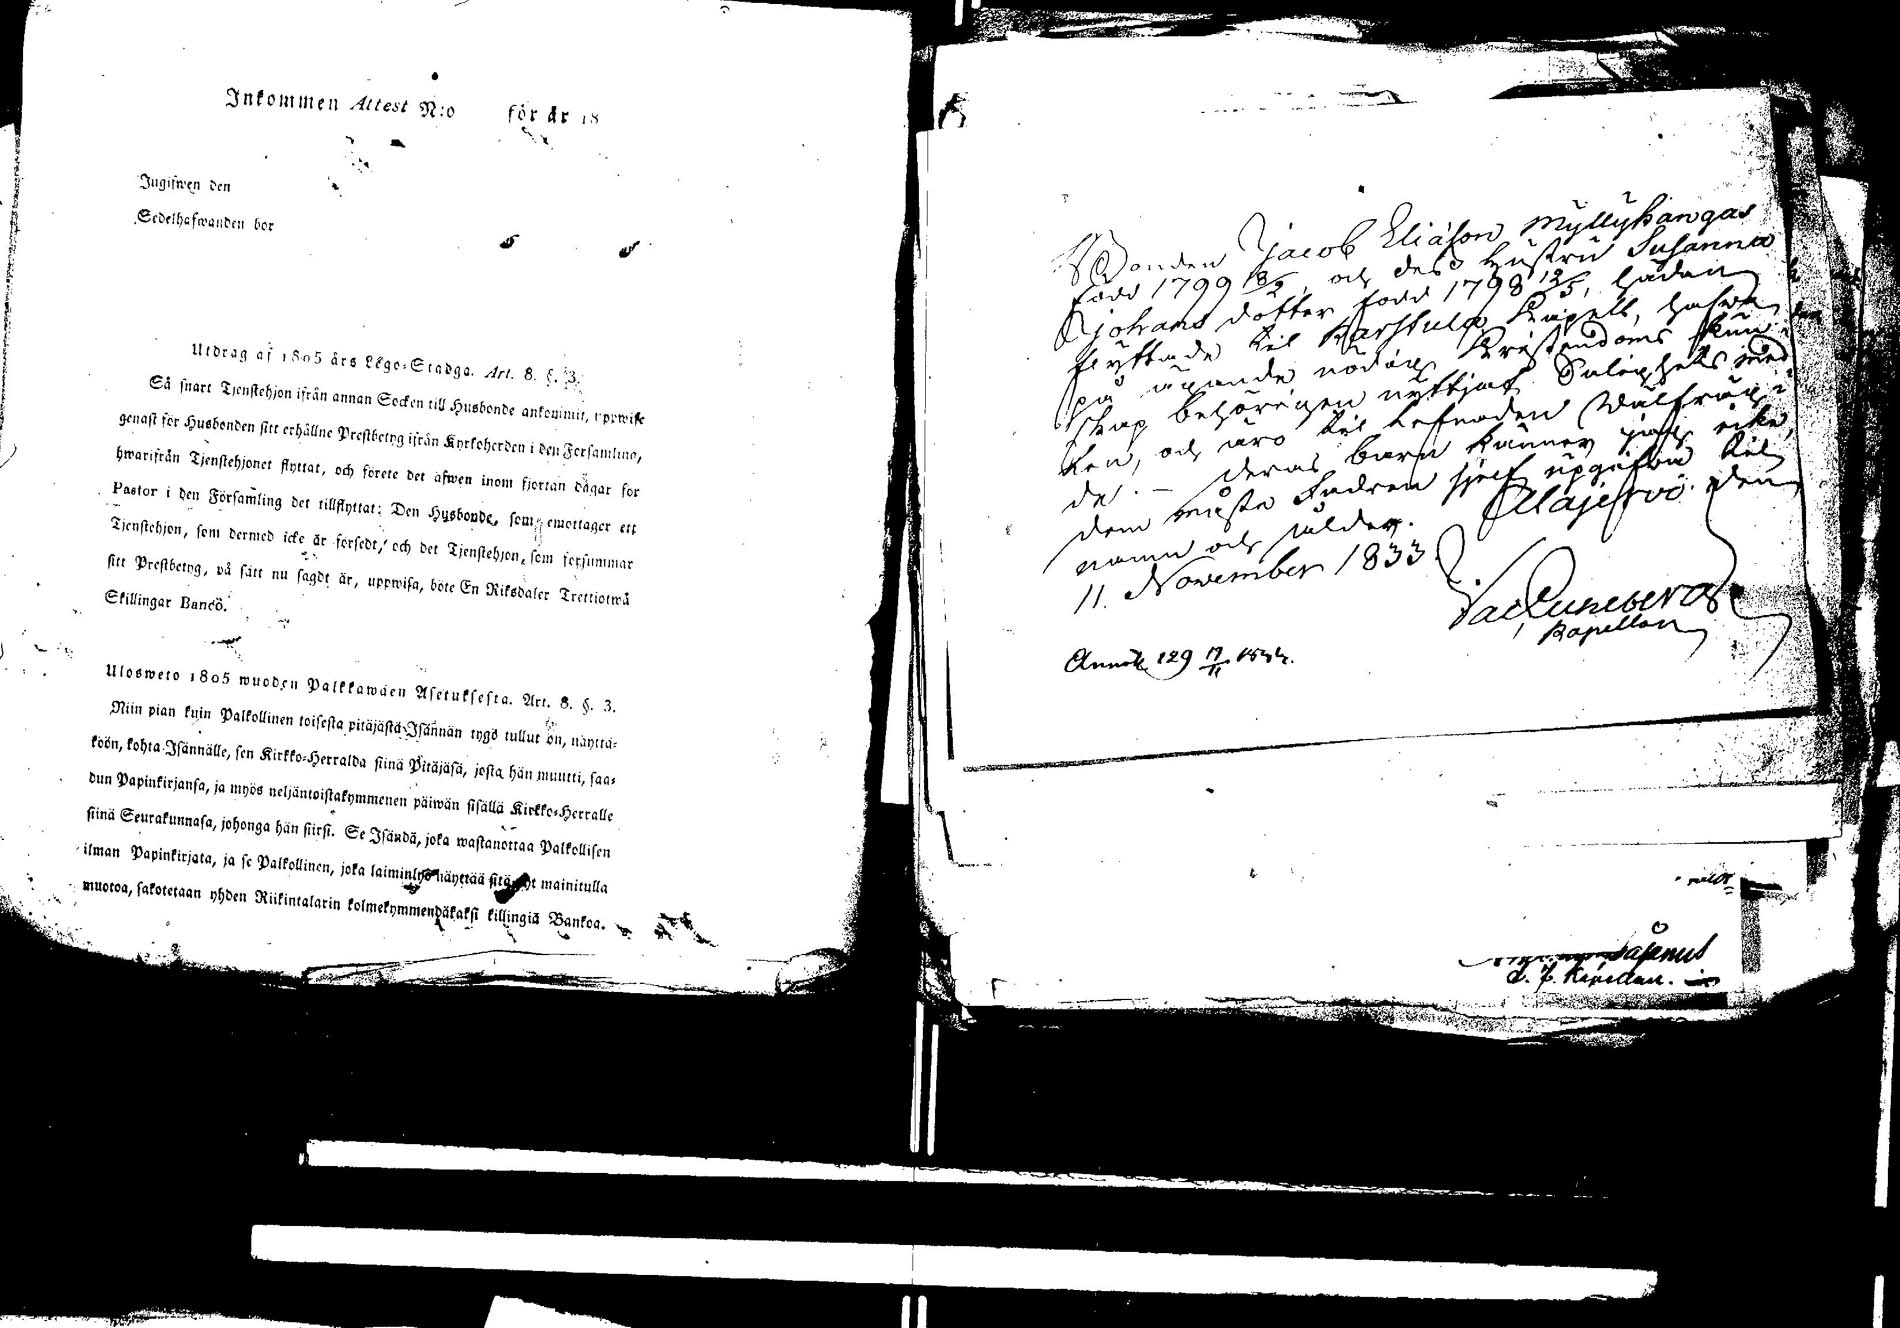 Inkommen Attest N:o för år 18
Ingifwen den
Sedelhafwanden bor
Utdrag af 1805 års Lego-Stadga. Art. 8. §. 3.
Så snart Tjenstehjon ifrån annan Socken till Husbonde ankommit, uppwise
genast för Husbonden sitt erhållne Prestbetyg ifrån Kyrkoherden i den Församling,
hwarifrån Tjenstehjonet flyttat, och förete det äfwen inom fjortan dagar för
Pastor i den Församling det tillflyttat: Den Husbonde, som emottager ett
Tjenstehjon, som dermed icke är försedt, och det Tjenstehjon, som försummar
sitt Prestbetyg, på sätt nu sagdt är, uppwisa, böte En Riksdaler Trettiotwå
Skillingar Banco.
Ulosweto 1805 wuoden Palkkawäen Asetuksesta. Art. 8. §. 3.
Niin pian kuin Palkollinen toisesta pitäjästä Isännän tygö tullut on, näyttä-
köön, kohta Isännälle, sen Kirkko-Herralda siinä Pitäjäsä, josta hän muutti, saa-
dun Papinkirjansa, ja myös neljäntoistakymmenen päiwän sisällä Kirkko-Herralle
siinä Seurakunnasa, johonga hän siirsi. Se Isändä, joka wastanottaa Palkollisen
ilman Papinkirjata, ja se Palkollinen, joka laiminlyö näyttää sitä mainitulla
muotoa, sakotetaan yhden Riikintalarin kolmekymmendäkaksi killingiä Bankoa.
Bonden Jacob Eliäson Myllykangas
född 1799 18/2, och dess Hustru Susanna
Johans dotter född 1798 12/5, hädan
flyttade til Karstula Kapell, hafwa
på ägande nödig Kristendoms kun-
skap behörigen nyttjat Salighets med-
len, och äro til lefnaden wälfräg-
de. – Deras barn känner jag icke,
dem måste Fadren sjelf upgifwa til
namn och ålder. Alajerwi den
11. November 1833
Jac Runeberg
Kapellan
Annot 129 17/11
d. f. Kapellan.